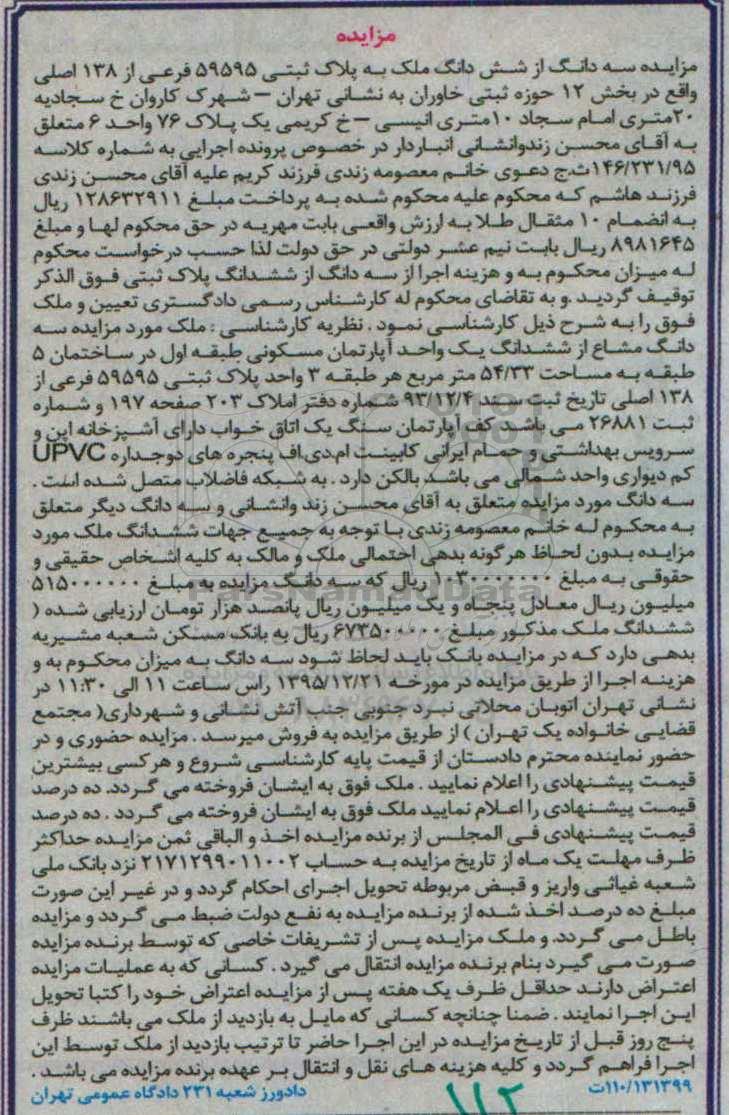 مزایده
مزایده سه دانگ از شش دانگ ملک به پلاک ثبتی ۵۹۵۹۵ فرعی از ۱۳۸ اصلی
واقع در بخش ۱۲ حوزه ثبتی خاوران به نشانی تهران – شهرک کاروان خ سجادیه
۲۰متری امام سجاد ۱۰متری انیسی – خ کریمی یک پلاک ۷۶ واحد ۶ متعلق
به آقای محسن زندوانشانی انباردار در خصوص پرونده اجرایی به شماره کلاسه
۱۴۶/۲۳۱/۹۵ث.ج دعوی خانم معصومه زندی فرزند کریم علیه آقای محسن زندی
فرزند هاشم که محکوم علیه محکوم شده به پرداخت مبلغ ۱۲۸۶۳۲۹۱۱ ریال
به انضمام ۱۰ مثقال طلا به ارزش واقعی بابت مهریه در حق محکوم لها و مبلغ
۸۹۸۱۶۴۵ ریال بابت نیم عشر دولتی در حق دولت لذا حسب درخواست محکوم
له میزان محکوم به و هزینه اجرا از سه دانگ از ششدانگ پلاک ثبتی فوق الذکر
توقیف گردید .و به تقاضای محکوم له کارشناس رسمی دادگستری تعیین و ملک
فوق را به شرح ذیل کارشناسی نمود . نظریه کارشناسی : ملک مورد مزایده سه
دانگ مشاع از ششدانگ یک واحد آپارتمان مسکونی طبقه اول در ساختمان ۵
طبقه به مساحت ۵۴/۳۳ متر مربع هر طبقه ۳ واحد پلاک ثبتی ۵۹۵۹۵ فرعی از
۱۳۸ اصلی تاریخ ثبت سند ۹۳/۱۲/۴ شماره دفتر املاک ۲۰۳ صفحه ۱۹۷ و شماره
ثبت ۲۶۸۸۱ می باشد کف آپارتمان سنگ یک اتاق خواب دارای آشپزخانه اپن و
سرویس بهداشتی و حمام ایرانی کابینت ام.دی.اف پنجره های دوجداره UPVC
کم دیواری واحد شمالی می باشد بالکن دارد . به شبکه فاضلاب متصل شده است .
سه دانگ مورد مزایده متعلق به آقای محسن زند وانشانی و سه دانگ دیگر متعلق
به محکوم له خانم معصومه زندی با توجه به جمیع جهات ششدانگ ملک مورد
مزایده بدون لحاظ هرگونه بدهی احتمالی ملک و مالک به کلیه اشخاص حقیقی و
حقوقی به مبلغ ۱۰۳۰۰۰۰۰۰۰ ریال که سه دانگ مزایده به مبلغ ۵۱۵۰۰۰۰۰۰
میلیون ریال معادل پنجاه و یک میلیون ریال پانصد هزار تومان ارزیابی شده (
ششدانگ ملک مذکور مبلغ ۶۷۳۵۰۰۰۰۰ ریال به بانک مسکن شعبه مشیریه
بدهی دارد که در مزایده بانک باید لحاظ شود سه دانگ به میزان محکوم به و
هزینه اجرا از طریق مزایده در مورخه ۱۳۹۵/۱۲/۲۱ راس ساعت ۱۱ الی ۱۱:۳۰ در
نشانی تهران اتوبان محلاتی نبرد جنوبی جنب آتش نشانی و شهرداری( مجتمع
قضایی خانواده یک تهران ) از طریق مزایده به فروش میرسد . مزایده حضوری و در
حضور نماینده محترم دادستان از قیمت پایه کارشناسی شروع و هرکسی بیشترین
قیمت پیشنهادی را اعلام نمایید . ملک فوق به ایشان فروخته می گردد. ده درصد
قیمت پیشنهادی را اعلام نمایید ملک فوق به ایشان فروخته می گردد . ده درصد
قیمت پیشنهادی فی المجلس از برنده مزایده اخذ و الباقی ثمن مزایده حداکثر
ظرف مهلت یک ماه از تاریخ مزایده به حساب ۲۱۷۱۲۹۹۰۱۱۰۰۲ نزد بانک ملی
شعبه غیاثی واریز و قبض مربوطه تحویل اجرای احکام گردد و در غیر این صورت
مبلغ ده درصد اخذ شده از برنده مزایده به نفع دولت ضبط می گردد و مزایده
باطل می گردد. و ملک مزایده پس از تشریفات خاصی که توسط برنده مزایده
صورت می گیرد بنام برنده مزایده انتقال می گیرد . کسانی که به عملیات مزایده
اعتراض دارند حداقل ظرف یک هفته پس از مزایده اعتراض خود را کتبا تحویل
این اجرا نمایند . ضمنا چنانچه کسانی که مایل به بازدید از ملک می باشند ظرف
پنج روز قبل از تاریخ مزایده در این اجرا حاضر تا ترتیب بازدید از ملک توسط این
اجرا فراهم گردد و کلیه هزینه های نقل و انتقال بر عهده برنده مزایده می باشد .
۱۱۰/۱۳۱۳۹۹ت دادورز شعبه ۲۳۱ دادگاه عمومی تهران
۱۱۲
ParsNamadData